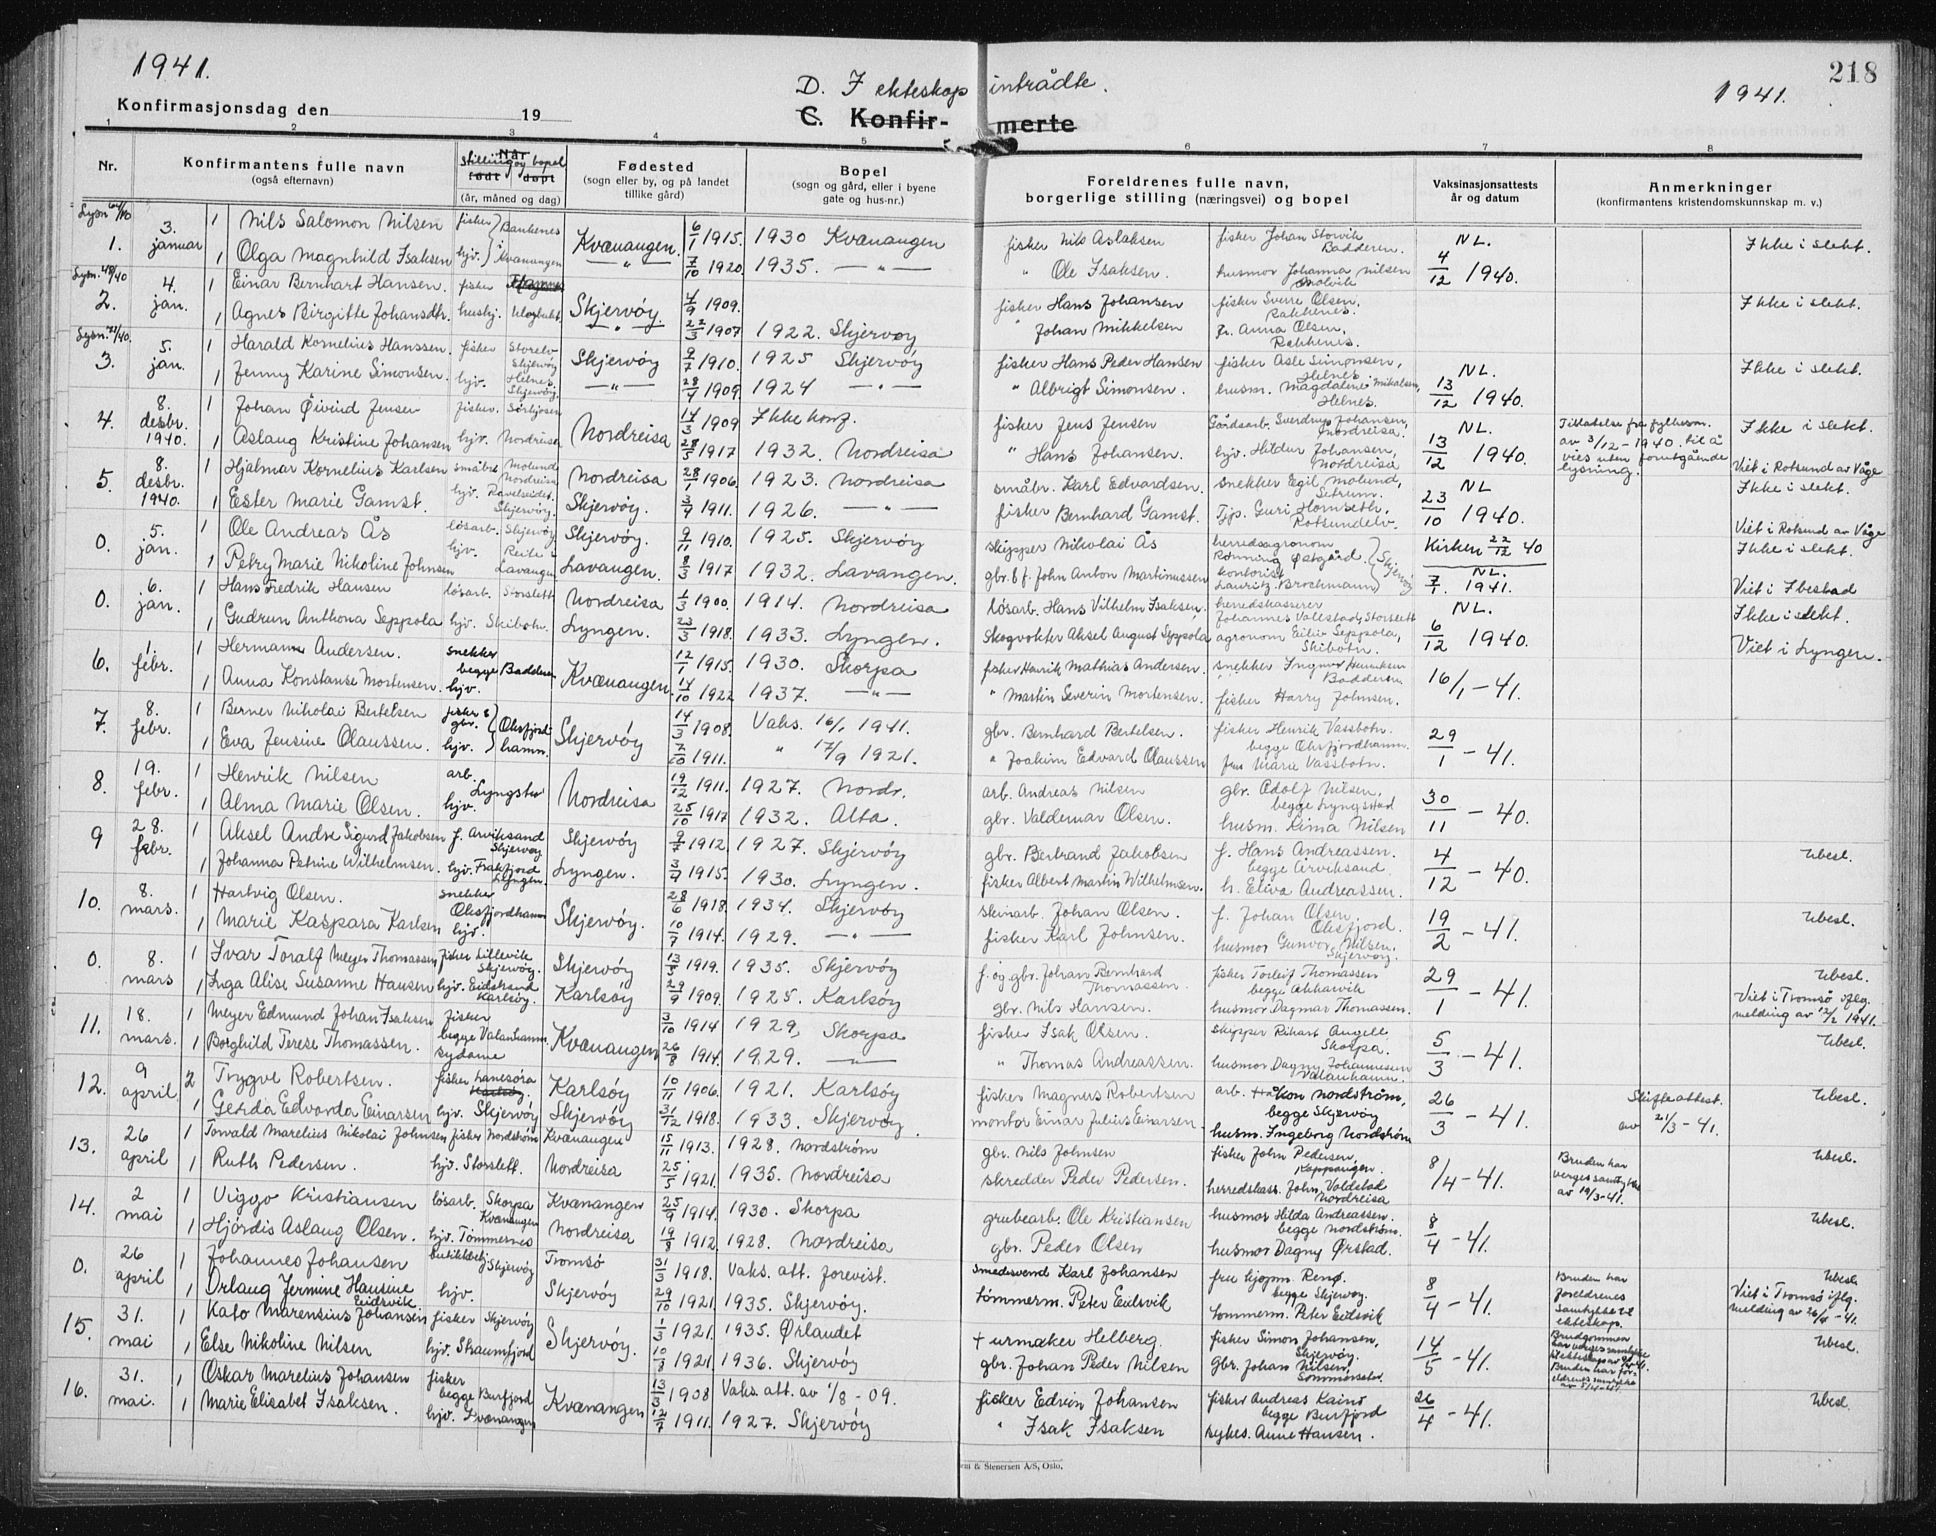 1941.
D. I ekteskap intrådte.
218
1941.
Konfirmasjonsdag den 19
C. Konfir-merte
1 2 3 4 5 6 7 8
Nr.
Konfirmantens fulle navn
(også efternavn)
Når
Stilling og bopel
født døpt
(år, måned og dag)
Fødested
(sogn eller by, og på landet
tillike gård)
Bopel
(sogn og gård, eller i byene
gate og hus-nr.)
Foreldrenes fulle navn,
borgerlige stilling (næringsvei) og bopel
Vaksinasjonsattests
år og datum
Anmerkninger
(konfirmantens kristendomskunnskap m. v.)
1. 3. januar 1 Nils Salomon Nilsen fisker Kvænangen 6/1 1915. 1930 Kvænangen fisker Nils Aslaksen fisker Johan Storvik Badderen. NL. Ikke i slekt.
1 Olga Magnhild Isaksen hjv. i Kvænangen 7/10 1920. 1935. " Ole Isaksen. husmor Johanna Nilsen 4/12 1940.
2. 4. jan. 1 Einar Bernhart Hansen. fisker Skjervöy. 4/9 1909. fisker Hans Johansen fisker Sverre Olsen. Ikke i slekt.
1 Agnes Birgitte Johansdtr. hushj. 22/3 1907 1922. Skjervøy " Johan Mikkelsen fr. Anna Olsen,
3. 5. jan. 1 Harald Kornelius Hanssen. fisker Storelv Skjervöy Skjervöy 9/7 1910. 1925 Skjervöy fisker Hans Peder Hansen fisker Asle Simonsen, Helnes. NL. Ikke i slekt.
1 Jenny Karine Simonsen. hjv. Helnes. Skjervöy. 28/4 1909. 1924 " Albrigt Simonsen. husm. Magdalene Mikalsen, Helnes. 13/12 1940.
4. 8. desbr. 1940. 1 Johan Öivind Jensen fisker. Sörkjosen Nordreisa 14/3 1909 Ikke konf. fisker Jens Jensen Gårdsarb. Sverdrup Johansen, Nordreisa. NL. Tillatelse fra fylkesm. av 3/12-1940 til å vies uten forutgående lysning. Ikke i slekt.
1 Aslaug Kristine Johansen hjv. Nordreisa 28/5 1917 1932. Nordreisa " Hans Johansen. hjv. Hildur Johansen, Nordreisa 13/12 1940.
5. 8. desbr. 1940. 1 Hjalmar Kornelius Karlsen småbr. Molund Nordreisa Nordreisa 28/1 1906. 1923. Nordreisa småbr. Karl Edvardsen. snekker Egil Molund, NL Viet i Rotsund av Våge Ikke i slekt.
1 Ester Marie Gamst. hjv. Ravelseidet. Skjervöy. Skjervöy. 3/4 1911. 1926. fisker Bernhard Gamst. Tjp. Guri Hamseth, Rotsundelv. 23/10 1940.
0. 5. jan. 1 Ole Andreas Ås lösarb. Skjervöy Skjervöy. 9/11 1910. 1925. Skjervöy skipper Nikolai Ås herredsagronom Rönning Östgård Skjervöy Kirken 22/12 40 Viet i Rotsund av Våge Ikke i slekt.
1 Petry Marie Nikoline Johnsen hjv. Lavangen Lavangen. 8/3 1917 1932. Lavangen. gbr. & f. John Anton Martinussen kontorist Lauritz Brochmann NL. 7/7. 1941. Viet i Ibestad
0. 6. jan. 1 Hans Fredrik Hansen lösarb. Storslett Nordreisa 1/3 1900. 1914. Nordreisa lösarb. Hans Vilhelm Isaksen. herredskasserer Johannes Vallestad, Storslett NL. Ikke i slekt.
1 Gudrun Anthona Seppola hjv. Skibotn. Lyngen. 23/3 1918. 1933. Lyngen. Skogvokter Aksel August Seppola agronom Eiliv Seppola, Skibotn. 6/12 1940. Viet i Lyngen.
6. 1. febr. 1 Hermann Andersen. snekker begge Badderen Kvænangen. 12/1 1915. 1930. Skorpa fisker Henrik Mathias Andersen. snekker Ingmar Henriksen Badderen 16/1-41.
1 Anna Konstanse Mortensen. hjv. 14/10 1922 1937. " Martin Severin Mortensen. fisker Harry Johnsen.
7. 8. febr. 1 Berner Nikolai Bertelsen fisker & gbr. Oksfjordhamn. Skjervöy 14/3 1908. Vaks. 16/1 1941. gbr. Bernhard Bertelsen. fisker Henrik Vassbotn. begge Oksfjordhamn. 29/1-41.
1 Eva Jensine Olaussen. hjv. 7/10 1911. " 17/9 1921. " Joakim Edvard Olaussen fru Marie Vassbotn.
8. 19. febr. 1 Henrik Nilsen arb. Nordreisa 19/12 1911. 1927. Nordr. arb. Andreas Nilsen gbr. Adolf Nilsen, begge Lyngstad 30/11-40.
1 Alma Marie Olsen. hjv. 25/10 1917 1932. Alta. gbr. Valdemar Olsen. husm. Rima Nilsen
9 28. febr. 1 Aksel Andre Sigurd Jakobsen f. Arviksand Skjervöy Skjervöy 9/7 1912. 1927. Skjervöy gbr. Bertrand Jakobsen f. Hans Andreassen. begge Arviksand. 4/12-40. Ubesl.
1 Johanna Petrine Wilhelmsen. hjv. Lyngen. Lyngen. 3/4 1915. 1930. Lyngen. fisker Albert Martin Wilhelmsen. h. Eliva Andreassen.
10. 8. mars. 1 Hartvig Olsen. snekker Oksfjordhamn Skjervöy. 28/6 1918. 1934. Skjervöy Johan Olsen. f. Johan Olsen. Oksfjord. 19/2-41. Ubesl.
1 Marie Kaspara Karlsen hjv. 10/7 1914. 1929. fisker Karl Johnsen. husmor Gunvor Nilsen. Skjervöy.
0. 8. mars 1 Ivar Toralf Meyer Thomassen fisker Lillevik Skjervöy. Skjervöy 13/3 1919. 1935. Skjervöy f. og gbr. Johan Bernhard Thomassen. fisker Torleif Thomassen begge Akkarvik 29/1-41. Ubesl.
1 Inga Alise Susanne Hansen hjv. Eidstrand Karlsöy. Karlsöy 29/9 1909. 1925. Karlsöy gbr. Nils Hansen. husmor Dagmar Thomassen. Viet i Tromsö iflg. melding av 12/2 1941.
11. 18. mars. 1 Meyer Edmund Johan Isaksen fisker begge Valanhamn. Kvænangen 3/10 1914 1929, Skorpa fisker Isak Olsen. skipper Rikart Angell Skorpa. 5/3-41. Ubesl.
1 Borghild Terese Thomassen. sydame 26/8 1914. 1929. " Thomas Andreassen. husmor Dagny Johannessen Valanhamn.
12. 9 april 2 Trygve Robertsen. fisker Lanesöra Karlsöy 10/11 1906. 1921. Karlsöy fisker Magnus Robertsen arb. Håkon Nordström, begge Skjervöy 26/3-41. Skifteattest. av 21/3-41. Ubesl.
1 Gerda Edvarda Einarsen hjv. Skjervöy Skjervöy 31/12 1918. 1933. Skjervöy. montör Einar Julius Einarsen. husm. Ingeborg Nordström
13. 26 april 1 Torvald Marelius Nikolai Johnsen fisker Nordström Kvænangen 15/11 1913. 1928. Nordström gbr. Nils Johnsen fisker John Pedersen, 8/4-41. Bruden har verges samtykke av 19/3-41. Ubesl.
1 Ruth Pedersen. hjv. Storslett. Nordreisa 25/5 1921. 1935. Nordreisa skredder Peder Pedersen. herredskass. John Valdstad Nordreisa
14. 2 mai 1 Viggo Kristiansen lösarb. Skorpa Kvænangen Kvænangen 25/9 1914. 1930. Skorpa grubearb. Ole Kristiansen husmor Hilda Andreassen. begge Nordström. 8/4-41. Ubesl.
1 Hjördis Aslaug Olsen. hjv. Tömmernes Nordreisa 19/8 1912. 1928. Nordreisa gbr. Peder Olsen husmor Dagny Örstad.
0. 26 april Johannes Johansen butikkbetj. Skjervöy Tromsö 31/3 1918. Vaks. att. forevist. Smedsvend Karl Johansen fru kjøpm. Renö. begge Skjervöy. 8/4-41. Bruden har foreldrenes samtykke til ekteskap. Ubesl.
Orlaug Jermine Hansine Eidsvik hjv. Skjervöy 29/10 1921. 1935. Skjervöy. tömmerm. Peter Eidsvik tömmerm. Peter Eidsvik Viet i Tromsö iflg. melding av 26/4-41.
15. 31. mai 1 Kato Marensius Johansen fisker Skjervöy Skjervöy. 1/3 1921. 1935. Ørlandet + urmaker Helberg. fisker Simon Johansen, Skjervöy. 14/5-41. Brudgommen har verges samtykke Ubesl.
1 Else Nikoline Nilsen hjv. Straumfjord 10/3 1921 1936. Skjervöy gbr. Johan Peder Nilsen gbr. Johan Nilsen, Sommerset. Bruden har foreldrenes samtykke
16. 31. mai. 1 Oskar Marelius Johansen fisker begge Burfjord Kvænangen 13/3 1908 Vaks. att. av 1/8-09. fisker Edvin Johansen fisker Andreas Kainö begge Burfjord 26/4-41. Ubesl.
1 Marie Elisabet Isaksen. hjv. Kvænangen 12/7 1911. 1927. Skjervöy " Isak Isaksen sykes. Anne Hansen.
& Stenersen A/S, Oslo.